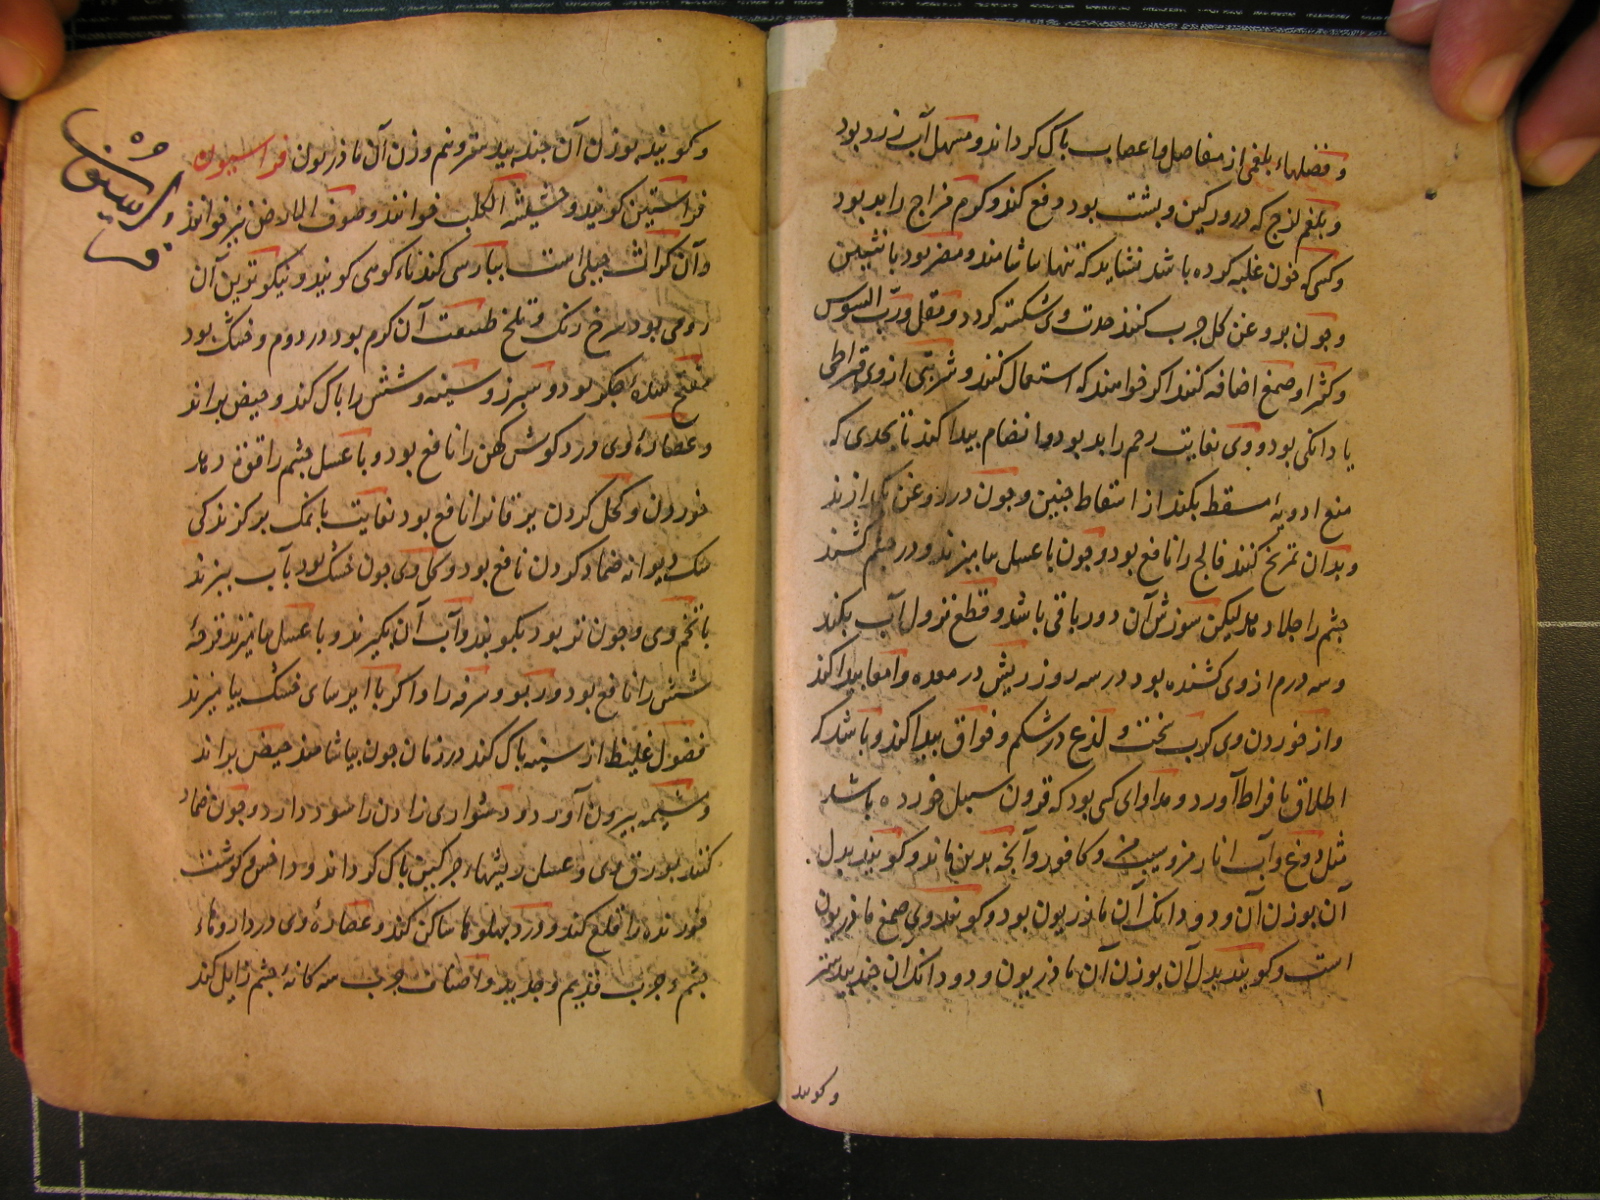 و فضلهاء بلغمی از مفاصل و اعصاب پاک کرداند و مسهل آب زرد بود
و بلغم لزج که در ورکین و پشت بود دفع کند و کرم مزاج را بد بود
و کسی که خون غلبه کرده باشد نشاید که تنها بیاشامند و مضر بود بانثیین
و چون بروغن کل چرب کنند حدت وی شکسته کردد و مقل و رب السوس
و کثیرا و صمغ اضافه کنند اکر خواهند که استعمال کنند و شربتی از وی قیراطی
یا دانکی بود و وی بغایت رحم را بد بود و انضام پیدا کند تا بحدی که
منع ادویهٔ مسقط بکند از اسقاط جنین و چون در روغن بکدازند
و بدان تمریخ کنند فالج را نافع بود و چون با عسل بیامیزند و در چشم کشند
چشم را جلا دهد لیکن سوزش آن دور باقی باشد و قطع نزول آب بکند
و سه درم از وی کشنده بود در سه روز ریش در معده و امعا پیدا کند
و از خوردن وی کرب سخت و لذع در شکم و فواق پیدا کند و باشد که
اطلاق بافراط آورد و مداوای کسی بود که قرون سنبل خورده باشد
مثل دوغ و آب انار مز و سیب و کافور و آنچه بدین ماند و کویند بدل
آن بوزن آن و دو دانک آن ماذریون بود و کویند وی صمغ ماذریون
است و کویند بدل آن بوزن آن ماذریون و دو دانک ان جندبیدستر
و کویند
و کویند بوزن آن جندبیدستر و نیم وزن آن ماذریون فراسیون
فراسیون
فراسیتن کویند و حشیشة الکلب خوانند و صوف الارض نیز خوانند
و آن کراث جبلی است بپارسی کندناء کوهی کویند و نیکوترین آن
رومی بود سرخ رنک و تلخ طبیعت آن کرم بود در دوم و خشک بود
مفتح سدهٔ جکر بود و سپرز و سینه و شش را پاک کند و حیض براند
و عصارهٔ وی درد کوش کهن را نافع بود و با عسل چشم را قوة دهد
خوردن و کحل کردن یرقان را نافع بود بغایت با نمک بر کزندکی
سک دیوانه ضماد کردن نافع بود و کی وی چون خشک بود بآب بپزند
با تخم وی و چون تر بود بکوبند و آب آن بکیرند و با عسل بیامیزند قرحهٔ
شش را نافع بود و ربو و سرفه را و اکر با ایرسای خشک بیامیزند
فضول غلیظ از سینه پاک کند در زمان چون بیاشامند حیض براند
و مشیمه بیرون آورد و دشواری زادن را سود دارد و چون ضماد
کنند بورق وی و عسل ریشهاء چرکین پاک کرداند و داخس و کوشت
خورنده را قلع کند و درد پهلو ها ساکن کند و عصارهٔ وی در داروهاء
چشم و جرب قدیم و جدید و اصناف جرب سه کانهٔ چشم زایل کند